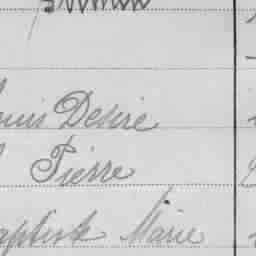 ouis Desire
Pierre
aptiste Marie